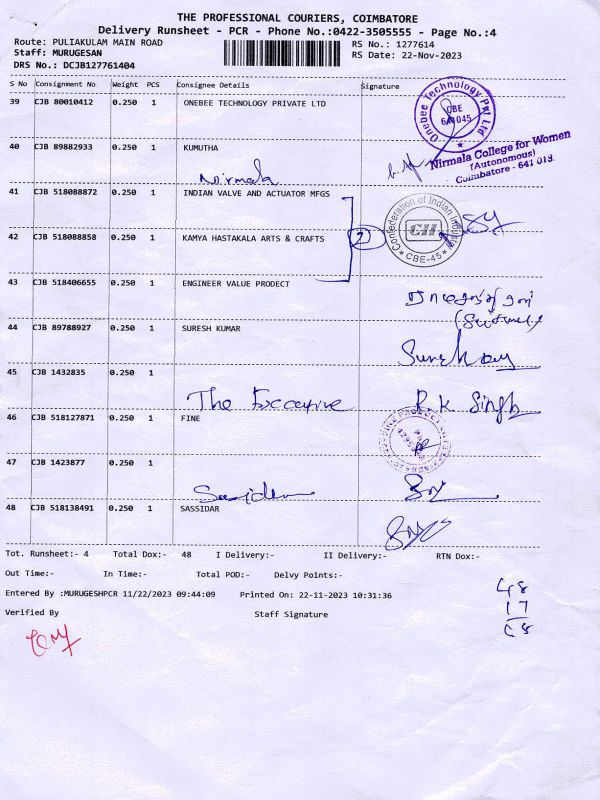 THE PROFESSIONAL COURIERS, COIMBATORE
Delivery Runsheet - PCR - Phone No.:0422-3505555 - Page No.:4
Route: PULIAKULAM MAIN ROAD
Staff: MURUGESAN
DRS No.: DCJB127761404
RS No.: 1277614
RS Date: 22-Nov-2023
S No Consignment No Weight PCS Consignee Details Signature
39 CJB 80010412 0.250 1 ONEBEE TECHNOLOGY PRIVATE LTD
Onebee Technology Pvt Ltd
CBE
641045
40 CJB 89882933 0.250 1 KUMUTHA
Nirmala
Nirmala College for Women
(Autonomous)
Coimbatore - 641 018.
41 CJB 518088872 0.250 1 INDIAN VALVE AND ACTUATOR MFGS
42 CJB 518088858 0.250 1 KAMYA HASTAKALA ARTS & CRAFTS
2
Confederation of Indian Industry
CII
CBE-45
43 CJB 518406655 0.250 1 ENGINEER VALUE PRODECT
44 CJB 89788927 0.250 1 SURESH KUMAR
45 CJB 1432835 0.250 1
The Executive R K Singh
46 CJB 518127871 0.250 1 FINE
47 CJB 1423877 0.250 1
48 CJB 518138491 0.250 1 SASSIDAR
Tot. Runsheet:- 4 Total Dox:- 48 I Delivery:- II Delivery:- RTN Dox:-
Out Time:- In Time:- Total POD:- Delvy Points:-
Entered By :MURUGESHPCR 11/22/2023 09:44:09 Printed On: 22-11-2023 10:31:36
Verified By Staff Signature
48
17